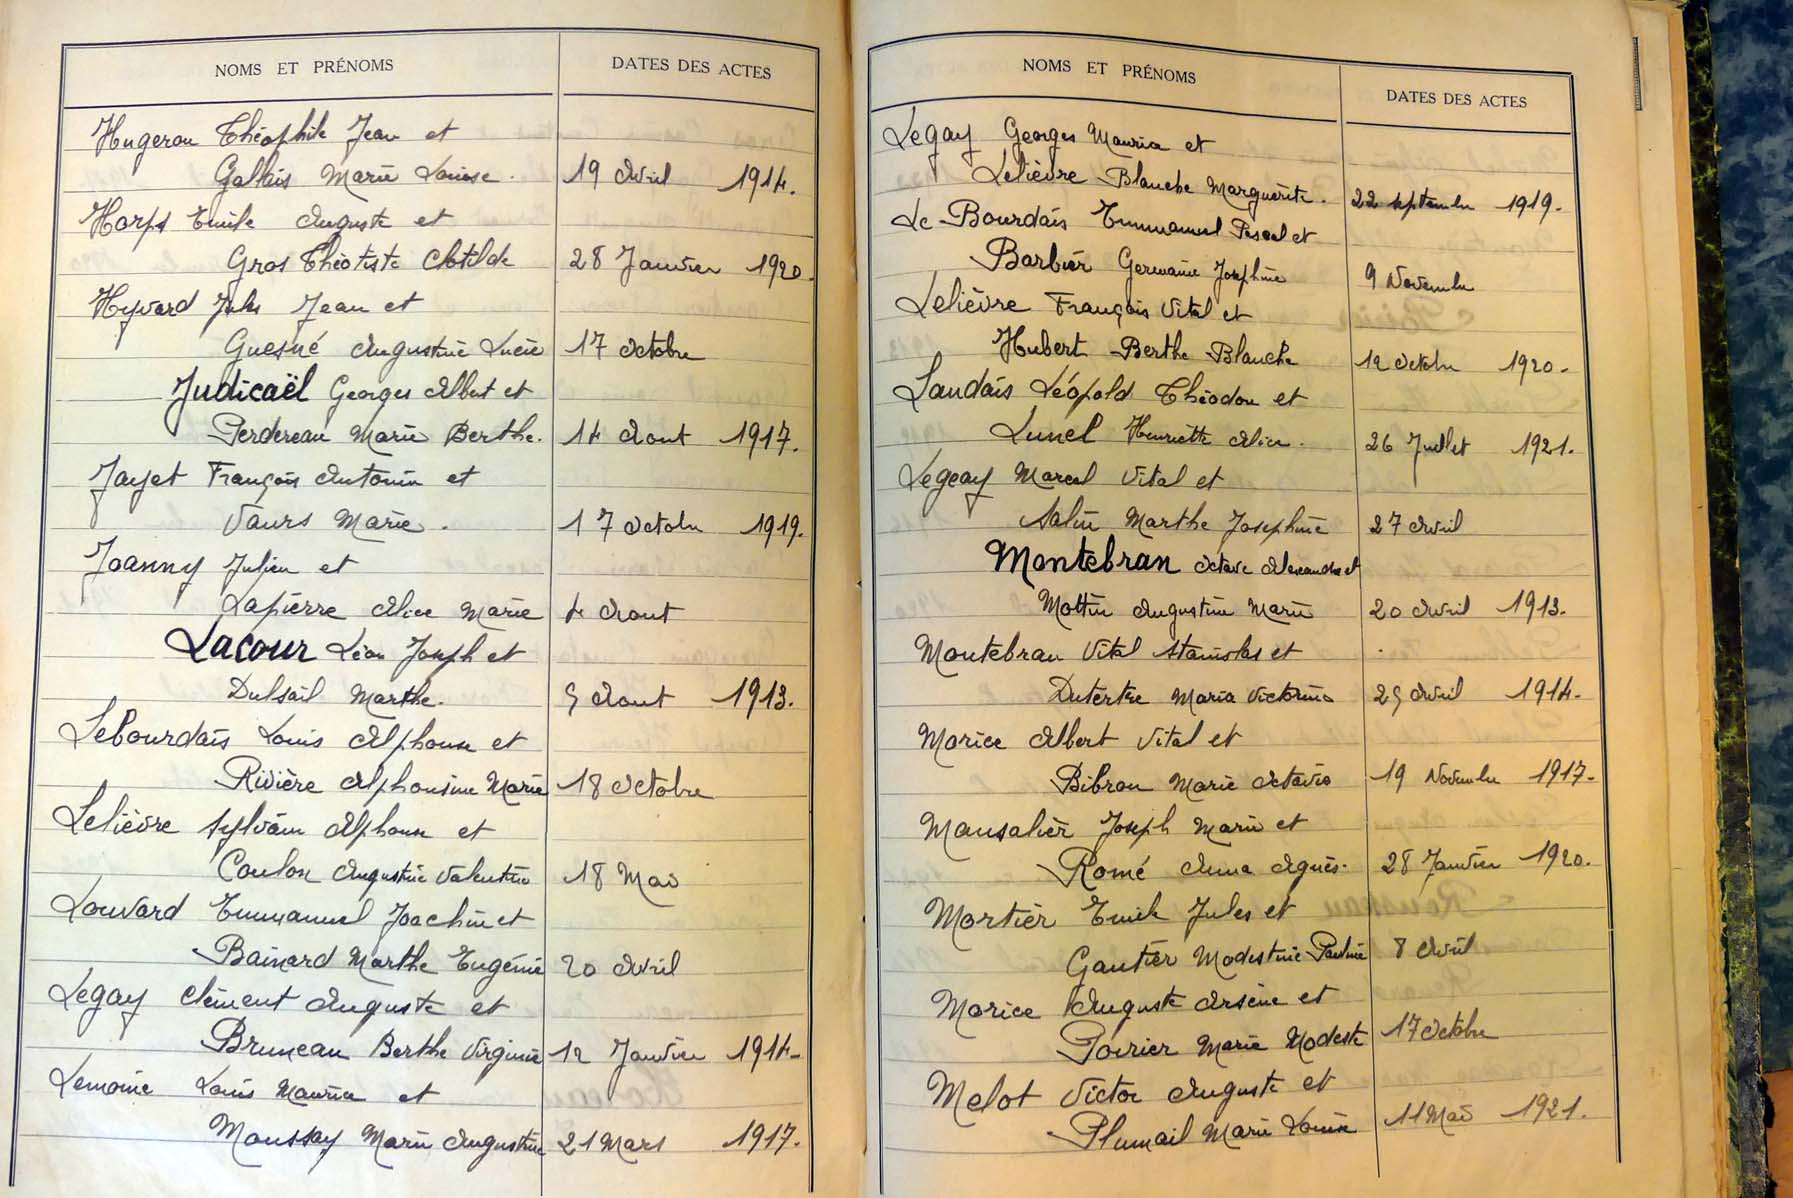 NOMS ET PRÉNOMS DATES DES ACTES
Hugeron Théophile Jean et
Gallais Marie Louise. 19 Avril 1914.
Horps Emile Auguste et
Gros Théotiste Clotilde 28 Janvier 1920.
Hyvard Jules Jean et
Guesné Augustine Lucie 17 Octobre
Judicaël Georges Albert et
Perdereau Marie Berthe. 14 Aout 1917.
Jayet François Antonin et
Vaurs Marie. 17 Octobre 1919.
Joanny Julien et
Lapierre Alice Marie 4 Aout
Lacour Léon Joseph et
Dulsail Marthe. 5 Aout 1913.
Lebourdais Louis Alphonse et
Rivière Alphonsine Marie 18 Octobre
Lelièvre Sylvain Alphonse et
Coulon Augustine Valentine 18 Mai
Louvard Emmanuel Joachim et
Bainard Marthe Eugénie 20 Avril
Legay Clément Auguste et
Bruneau Berthe Virginie 12 Janvier 1914
Lemoine Louis Maurice et
Moussay Marie Augustine 21 Mars 1917.
NOMS ET PRÉNOMS DATES DES ACTES
Legay Georges Maurice et
Lelièvre Blanche Marguerite. 22 Septembre 1919.
Le Bourdais Emmanuel Pascal et
Barbier Germaine Joséphine 9 Novembre
Lelièvre François Vital et
Hubert Berthe Blanche 12 Octobre 1920.
Landais Léopold Théodore et
Lunel Henriette Alice. 26 Juillet 1921.
Legeay Marcel Vital et
Salin Marthe Josephine 27 Avril
Montebran Octave Alexandre et
Mottin Augustine Marie 20 Avril 1913.
Montebran Vital Stanislas et
Dutertre Maria Victorine 25 Avril 1914.
Morice Albert Vital et
Bibron Marie Octavie 19 Novembre 1917.
Mansalier Joseph Marie et
Romé Anna Agnès. 28 Janvier 1920.
Mortier Emile Jules et
Gautier Modestine Pauline 8 Avril
Morice Auguste Arsène et
Poirier Marie Modeste 17 Octobre
Melot Victor Auguste et
Plumail Marie Louise 11 Mai 1921.